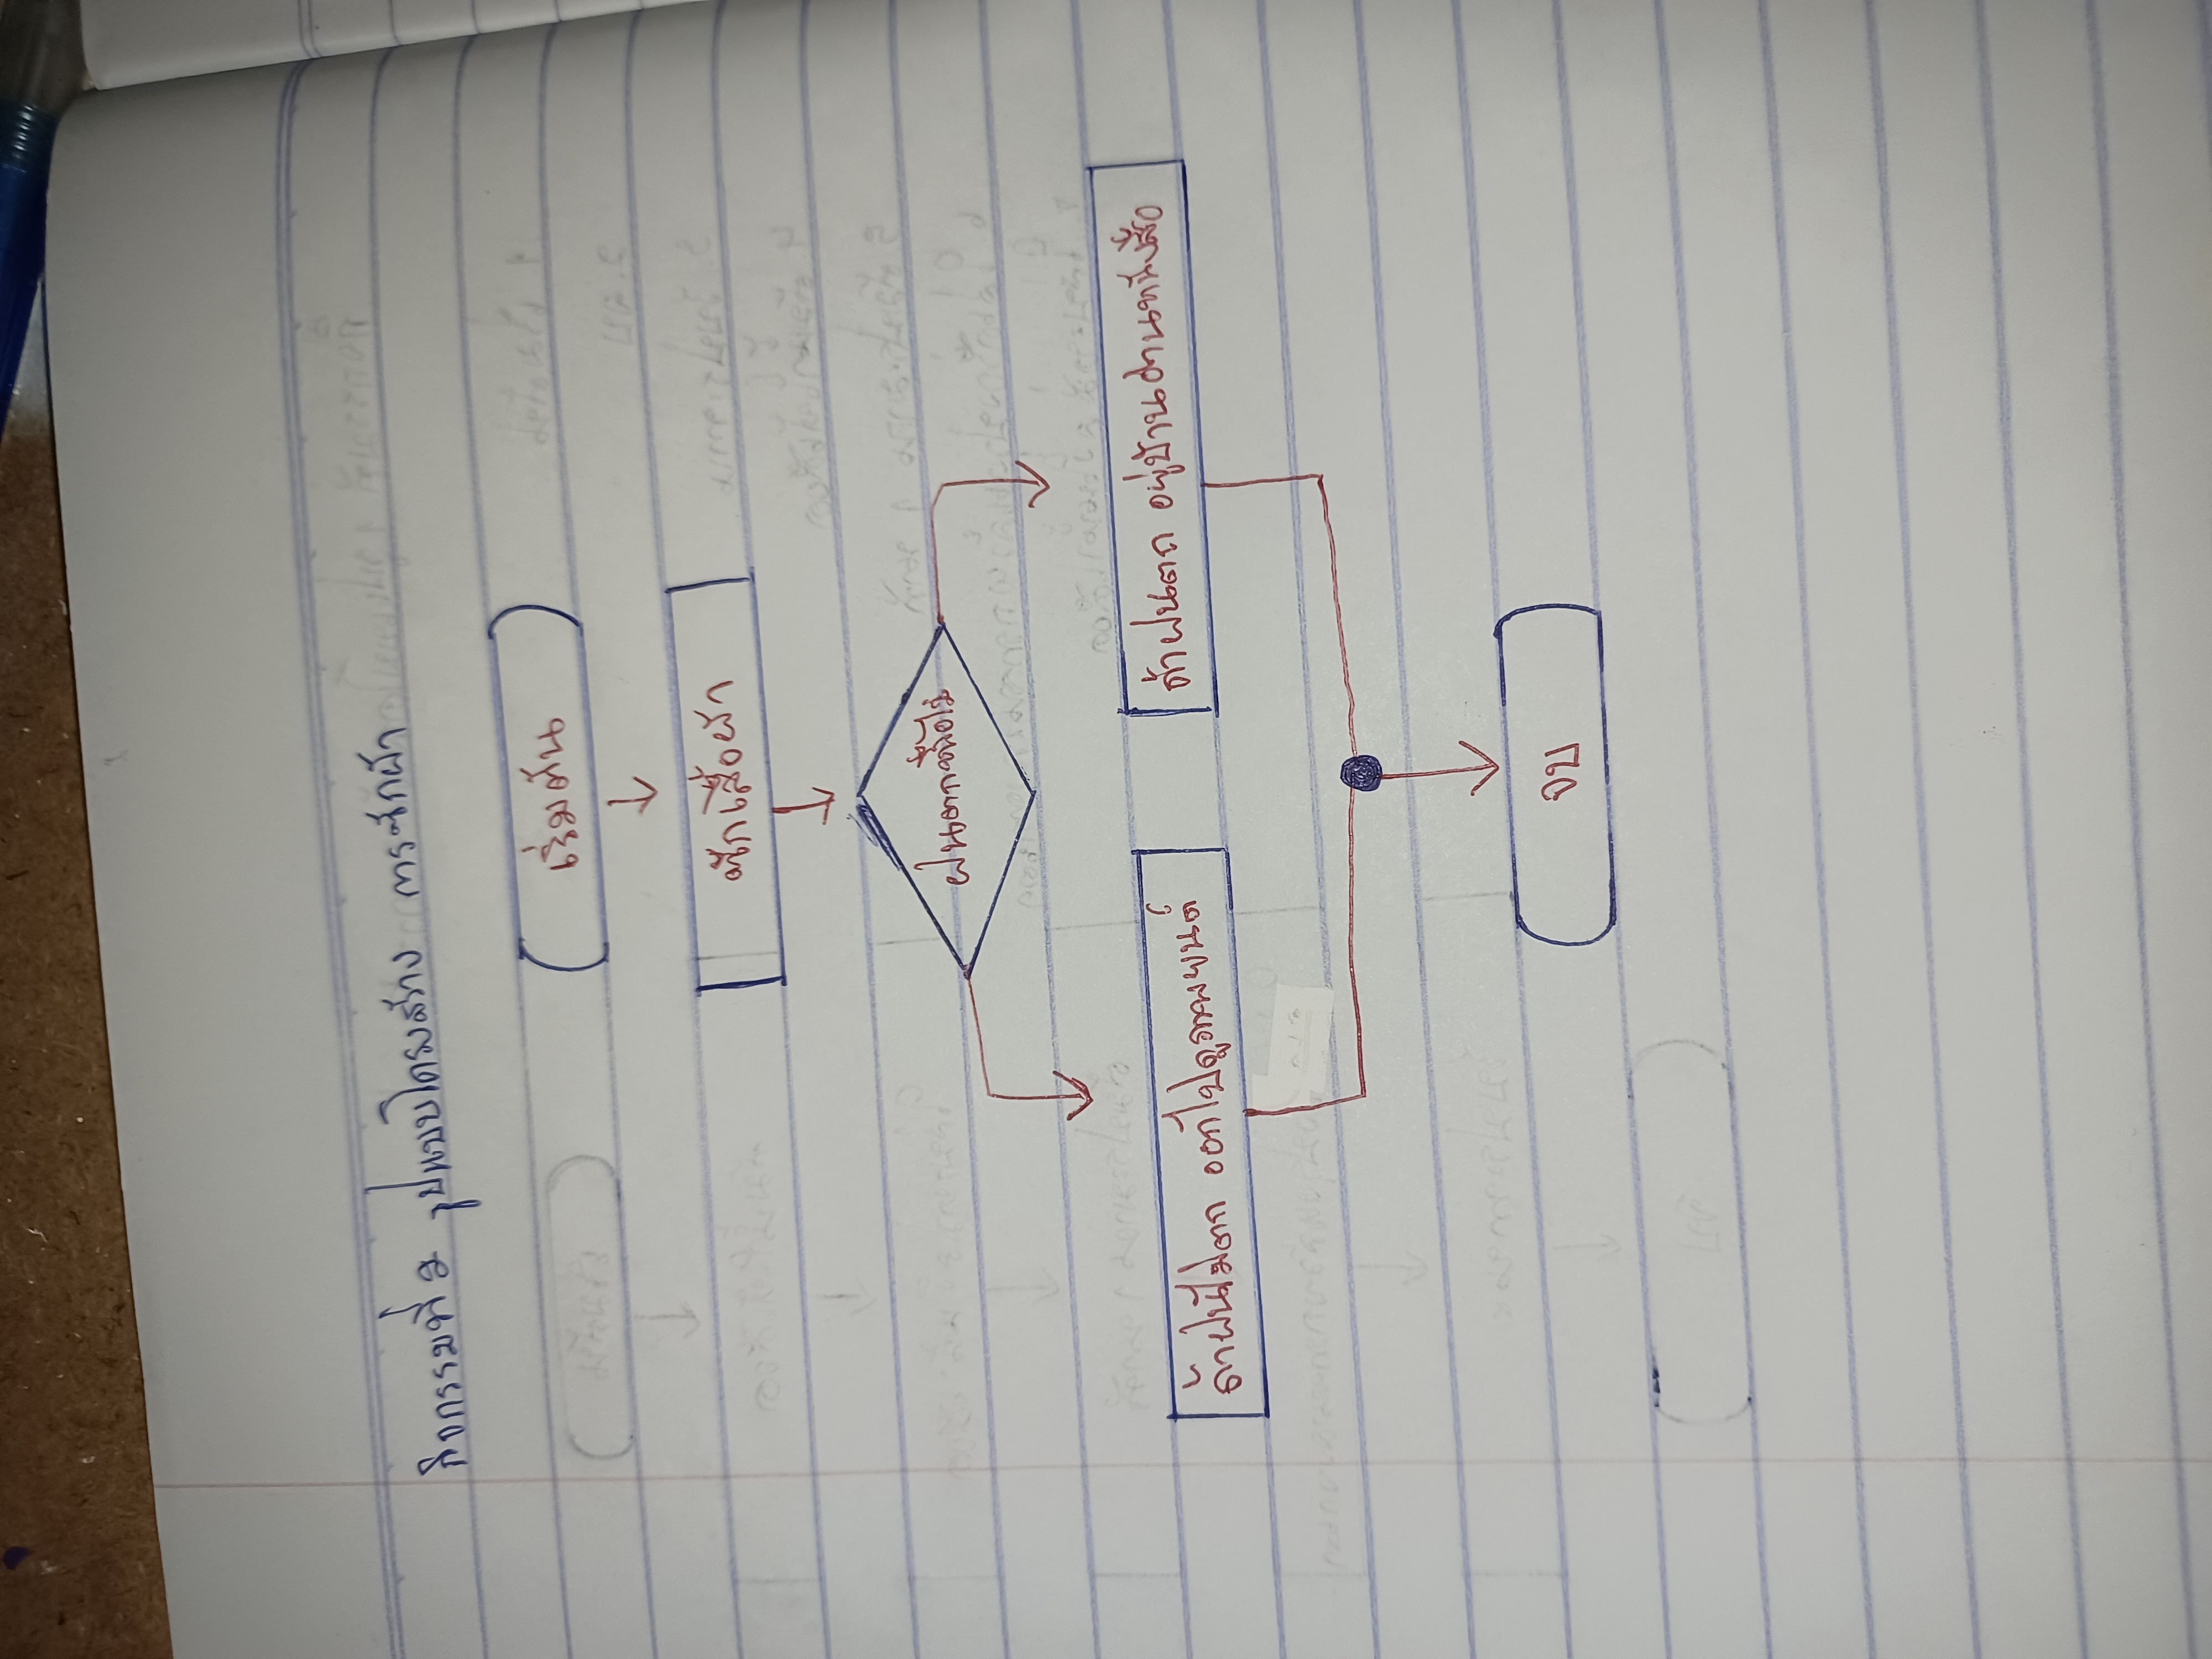 กิจกรรมที่ 2 รูปแบบโครงสร้าง การซักผ้า
เริ่มต้น
ซักเสื้อผ้า
ฝนตกหรือไม่
ถ้าฝนไม่ตก ออกไปดูภาพยนต์
ถ้าฝนตก อยู่บ้านอ่านหนังสือ
จบ